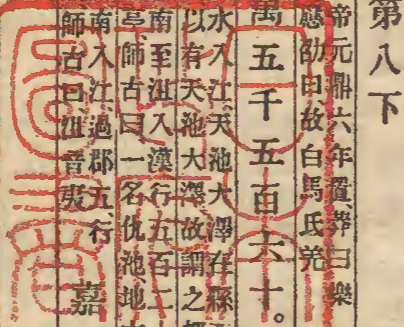 第八下
帝元鼎六年置、莽曰樂
應劭曰、故白馬氐羌
萬五千五百六十。
水入江、天池大澤在縣
以有天池大澤、故謂之都
南至沮入漢、行五百二十
莫、師古曰、一名仇池、地方
南入江、過郡五、行
師古曰、沮音夷
嘉